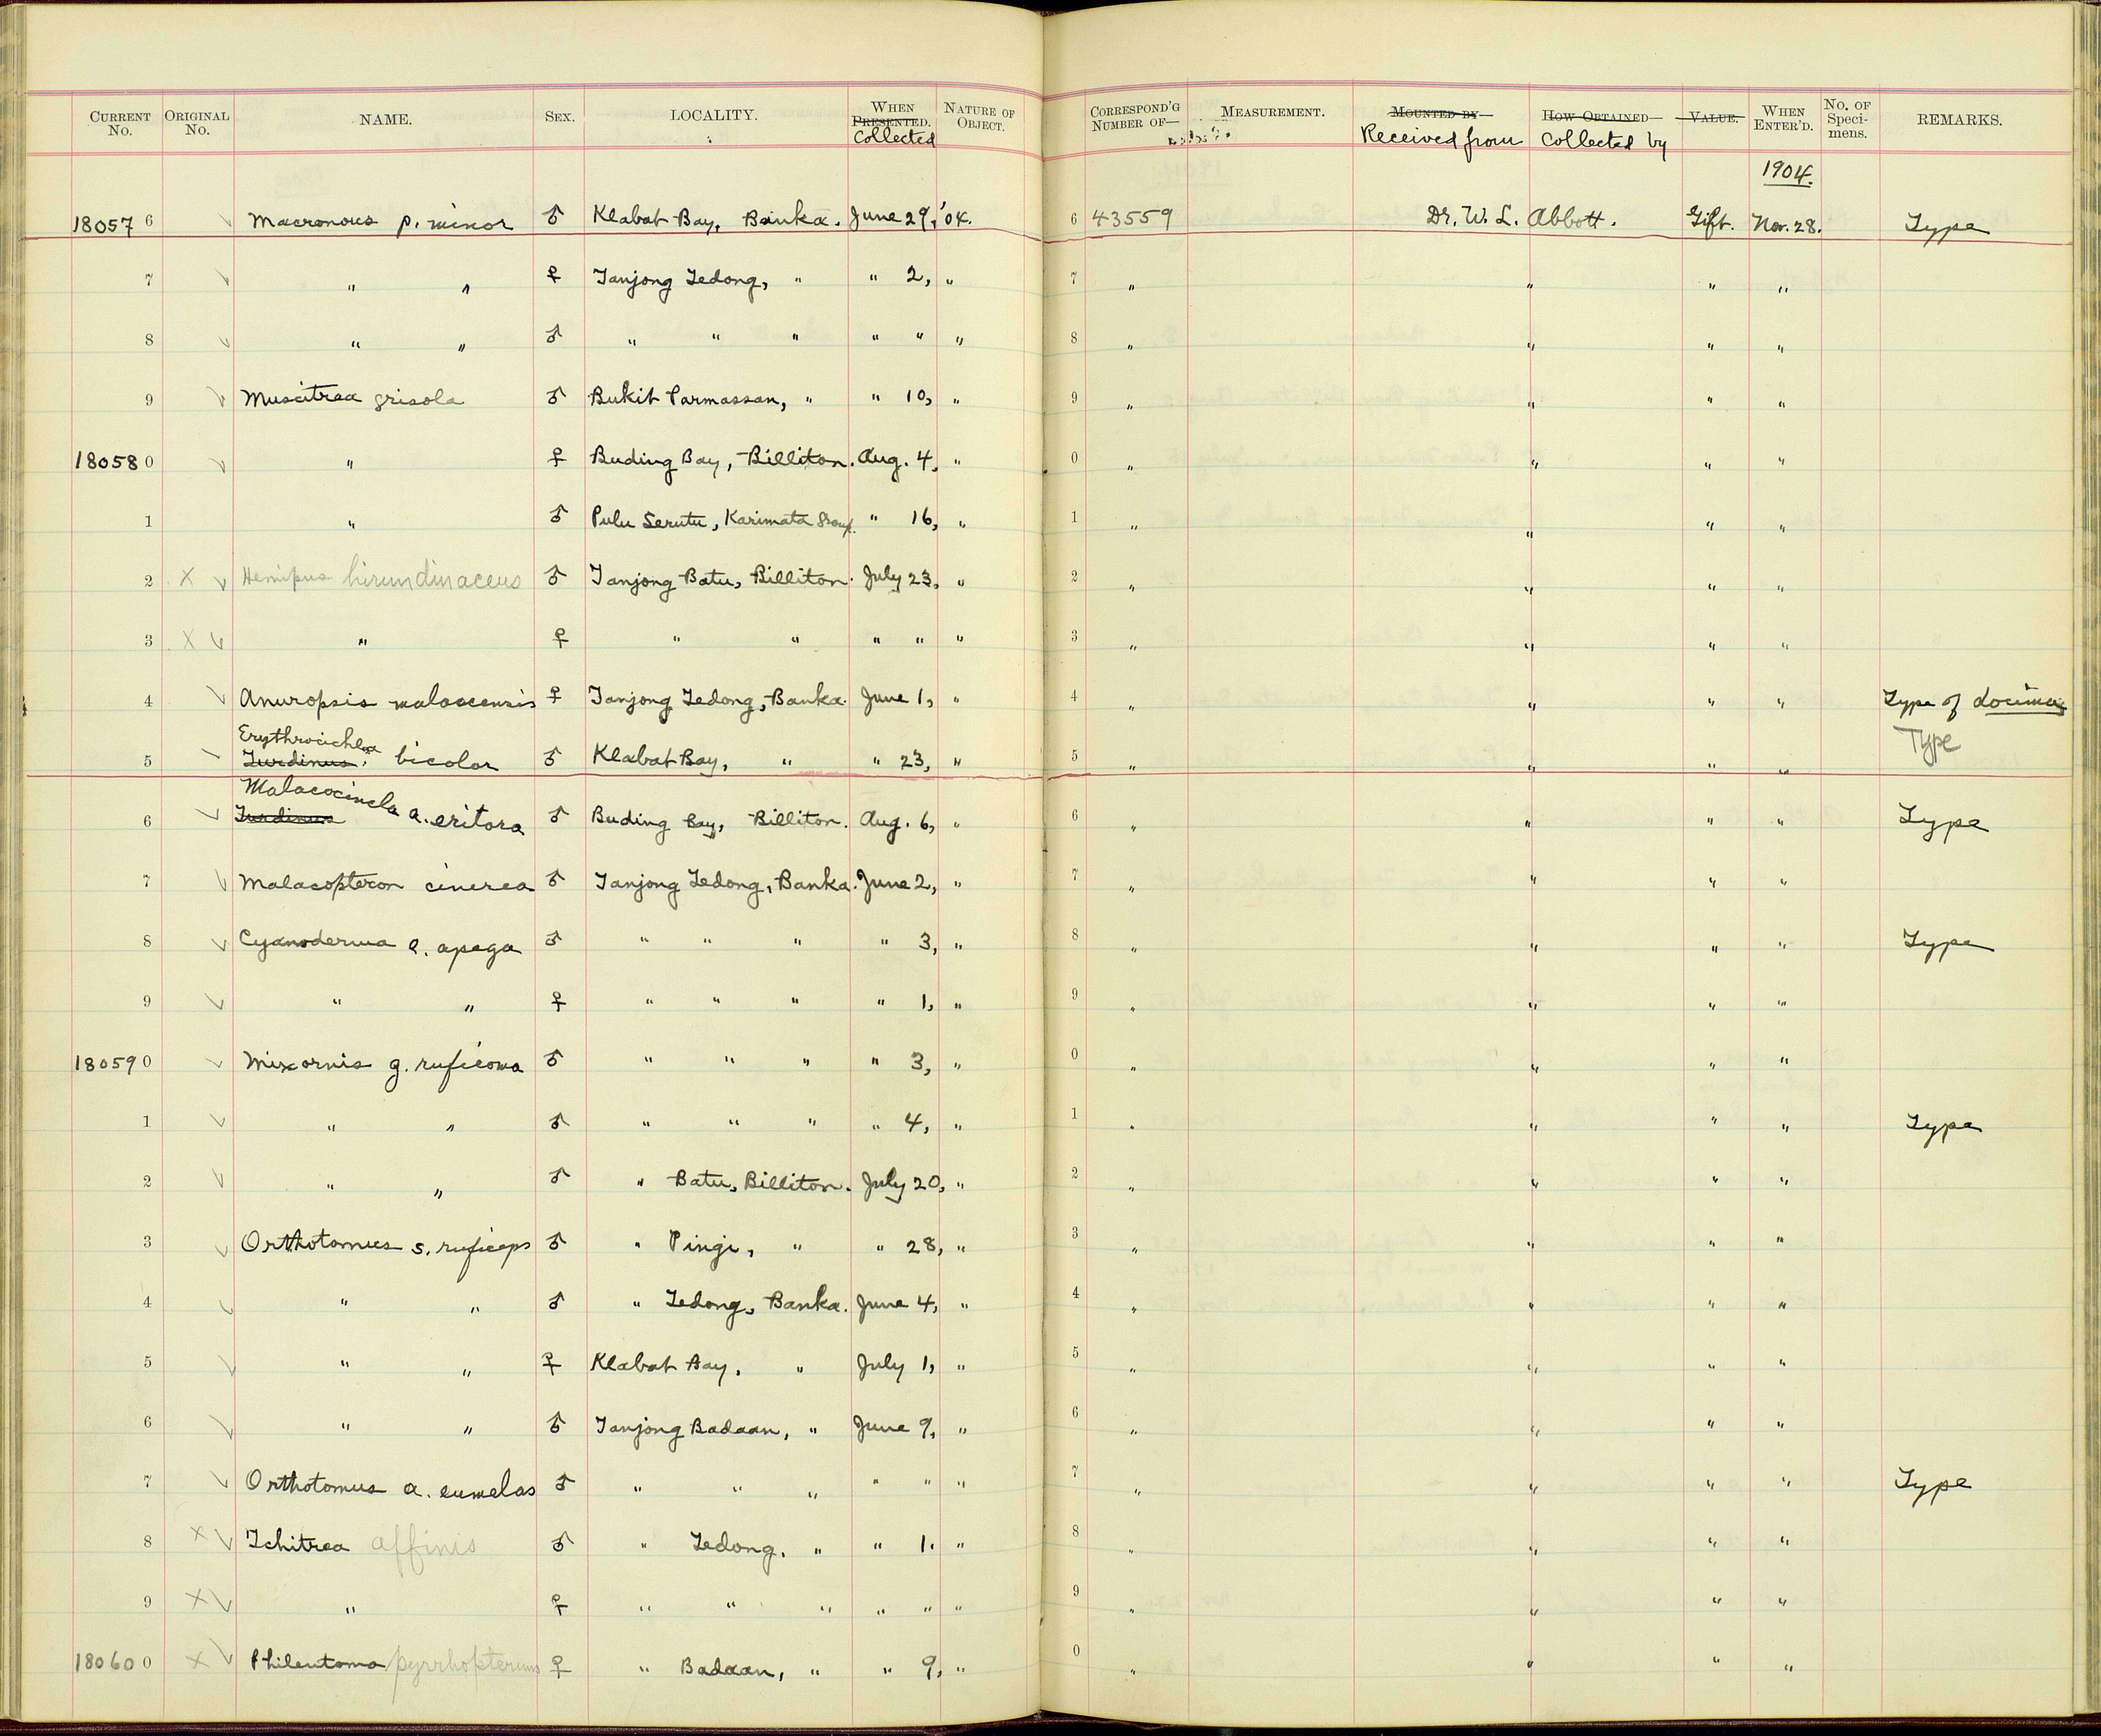 CURRENT No. ORIGINAL No. NAME. SEX. LOCALITY. WHEN PRESENTED. Collected NATURE OF OBJECT. CORRESPOND'G NUMBER OF— MEASUREMENT. MOUNTED BY— Received from HOW OBTAINED— Collected by VALUE. WHEN ENTER'D. No. OF Specimens. REMARKS.
1904.
180576 Macronous p. minor ♂ Klabat Bay, Banka. June 29, '04. 6 43559 Dr. W. L. Abbott. Gift. Nov. 28. Type
7 " " ♀ Tanjong Tedong, " " 2, " 7 " " " "
8 " " ♂ " " " " " " 8 " " " "
9 Muscitrea grisola ♂ Bukit Parmassan, " " 10, " 9 " " " "
180580 " ♀ Buding Bay, Billiton. Aug. 4, " 0 " " " "
1 " ♂ Pulu Serutu, Karimata Group. " 16, " 1 " " " "
2 X Hemipus hirundinaceus ♂ Tanjong Batu, Billiton. July 23, " 2 " " " "
3 X " ♀ " " " " " 3 " " " "
4 Anuropsis malaccensis ♀ Tanjong Tedong, Banka. June 1, " 4 " " " " Type of
5 Erythrocichla Turdinus bicolor ♂ Klabat Bay, " " 23, " 5 " " " " Type
6 Malacocincla Turdinus a. eritora ♂ Buding Bay, Billiton. Aug. 6, " 6 " " " " Type
7 Malacopteron cinerea ♂ Tanjong Tedong, Banka. June 2, " 7 " " " "
8 Cyanoderma e. apega ♂ " " " " 3, " 8 " " " " Type
9 " " ♀ " " " " 1, " 9 " " " "
180590 Mixornis g. ruficoma ♂ " " " " 3, " 0 " " " "
1 " " ♂ " " " " 4, " 1 " " " " Type
2 " " ♂ " Batu, Billiton. July 20, " 2 " " " "
3 Orthotomus s. ruficeps ♂ " Pingi, " " 28, " 3 " " " "
4 " " ♂ " Tedong, Banka. June 4, " 4 " " " "
5 " " ♀ Klabat Bay, " July 1, " 5 " " " "
6 " " ♂ Tanjong Badaan, " June 9, " 6 " " " "
7 Orthotomus a. eumelas ♂ " " " " " " 7 " " " " Type
8 X Tchitrea affinis ♂ " Tedong, " " 1. " 8 " " " "
9 X " ♀ " " " " " " 9 " " " "
180600 X Philentoma pyrrhopterum ♀ " Badaan, " " 9, " 0 " " " "